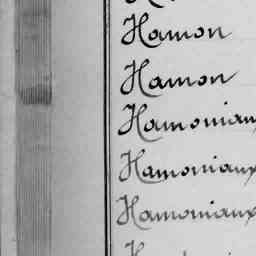 Hamon
Hamon
Hamoniaux
Hamoniaux
Hamoniaux